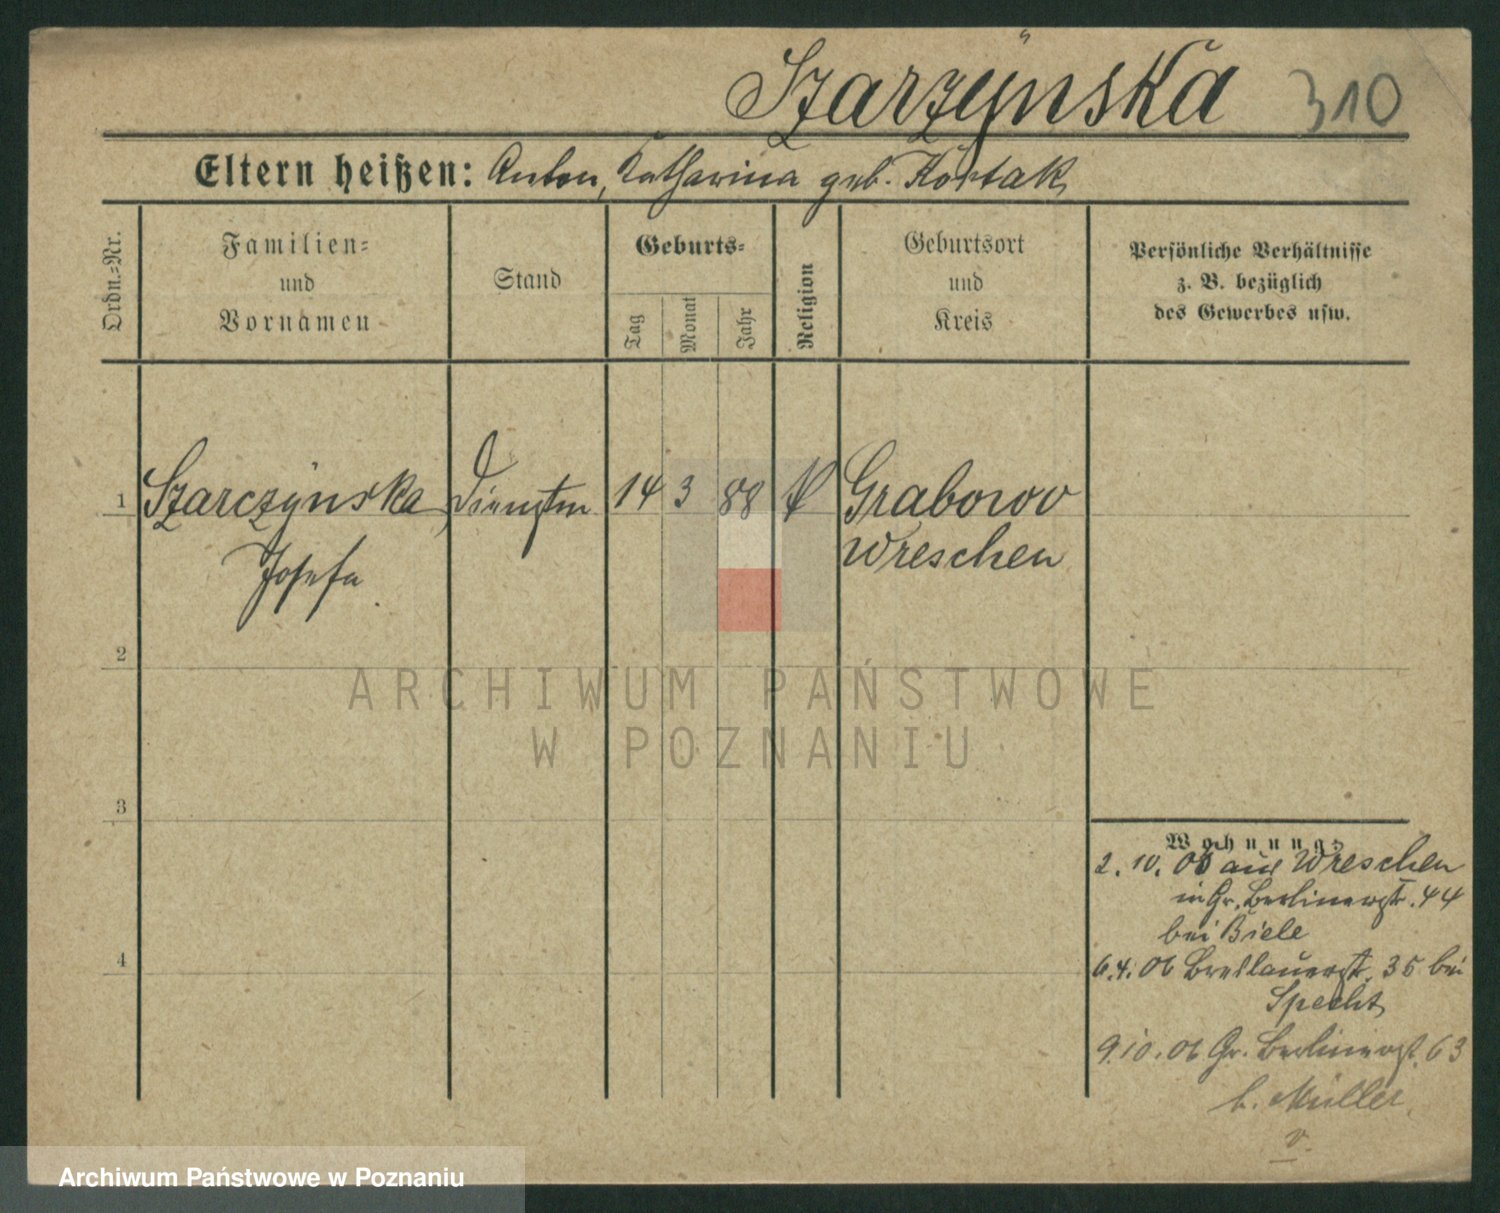 Szarzÿnska 310
Eltern heißen: Anton, Katharina geb. Kortak
Ordn.=Nr.
Familien=
und
Vornamen
Stand
Geburts=
Tag
Monat
Jahr
Religion
Geburtsort
und
Kreis
Persönliche Verhältnisse
z. B. bezüglich
des Gewerbes usw.
1 Szarczÿnska, 14 3 88 k Grabowo
Josefa Wreschen
2
3
4
ARCHIWUM PAŃSTWOWE
W POZNANIU
Wohnung:
2. 10. 05 aus Wreschen
in Gr. Berlinerstr. 44
bei Biele
6.4.06 Breslauerstr. 35 bei
Specht
9.10.06 Gr. Berlinerst. 63
b. Müller.
v.
Archiwum Państwowe w Poznaniu